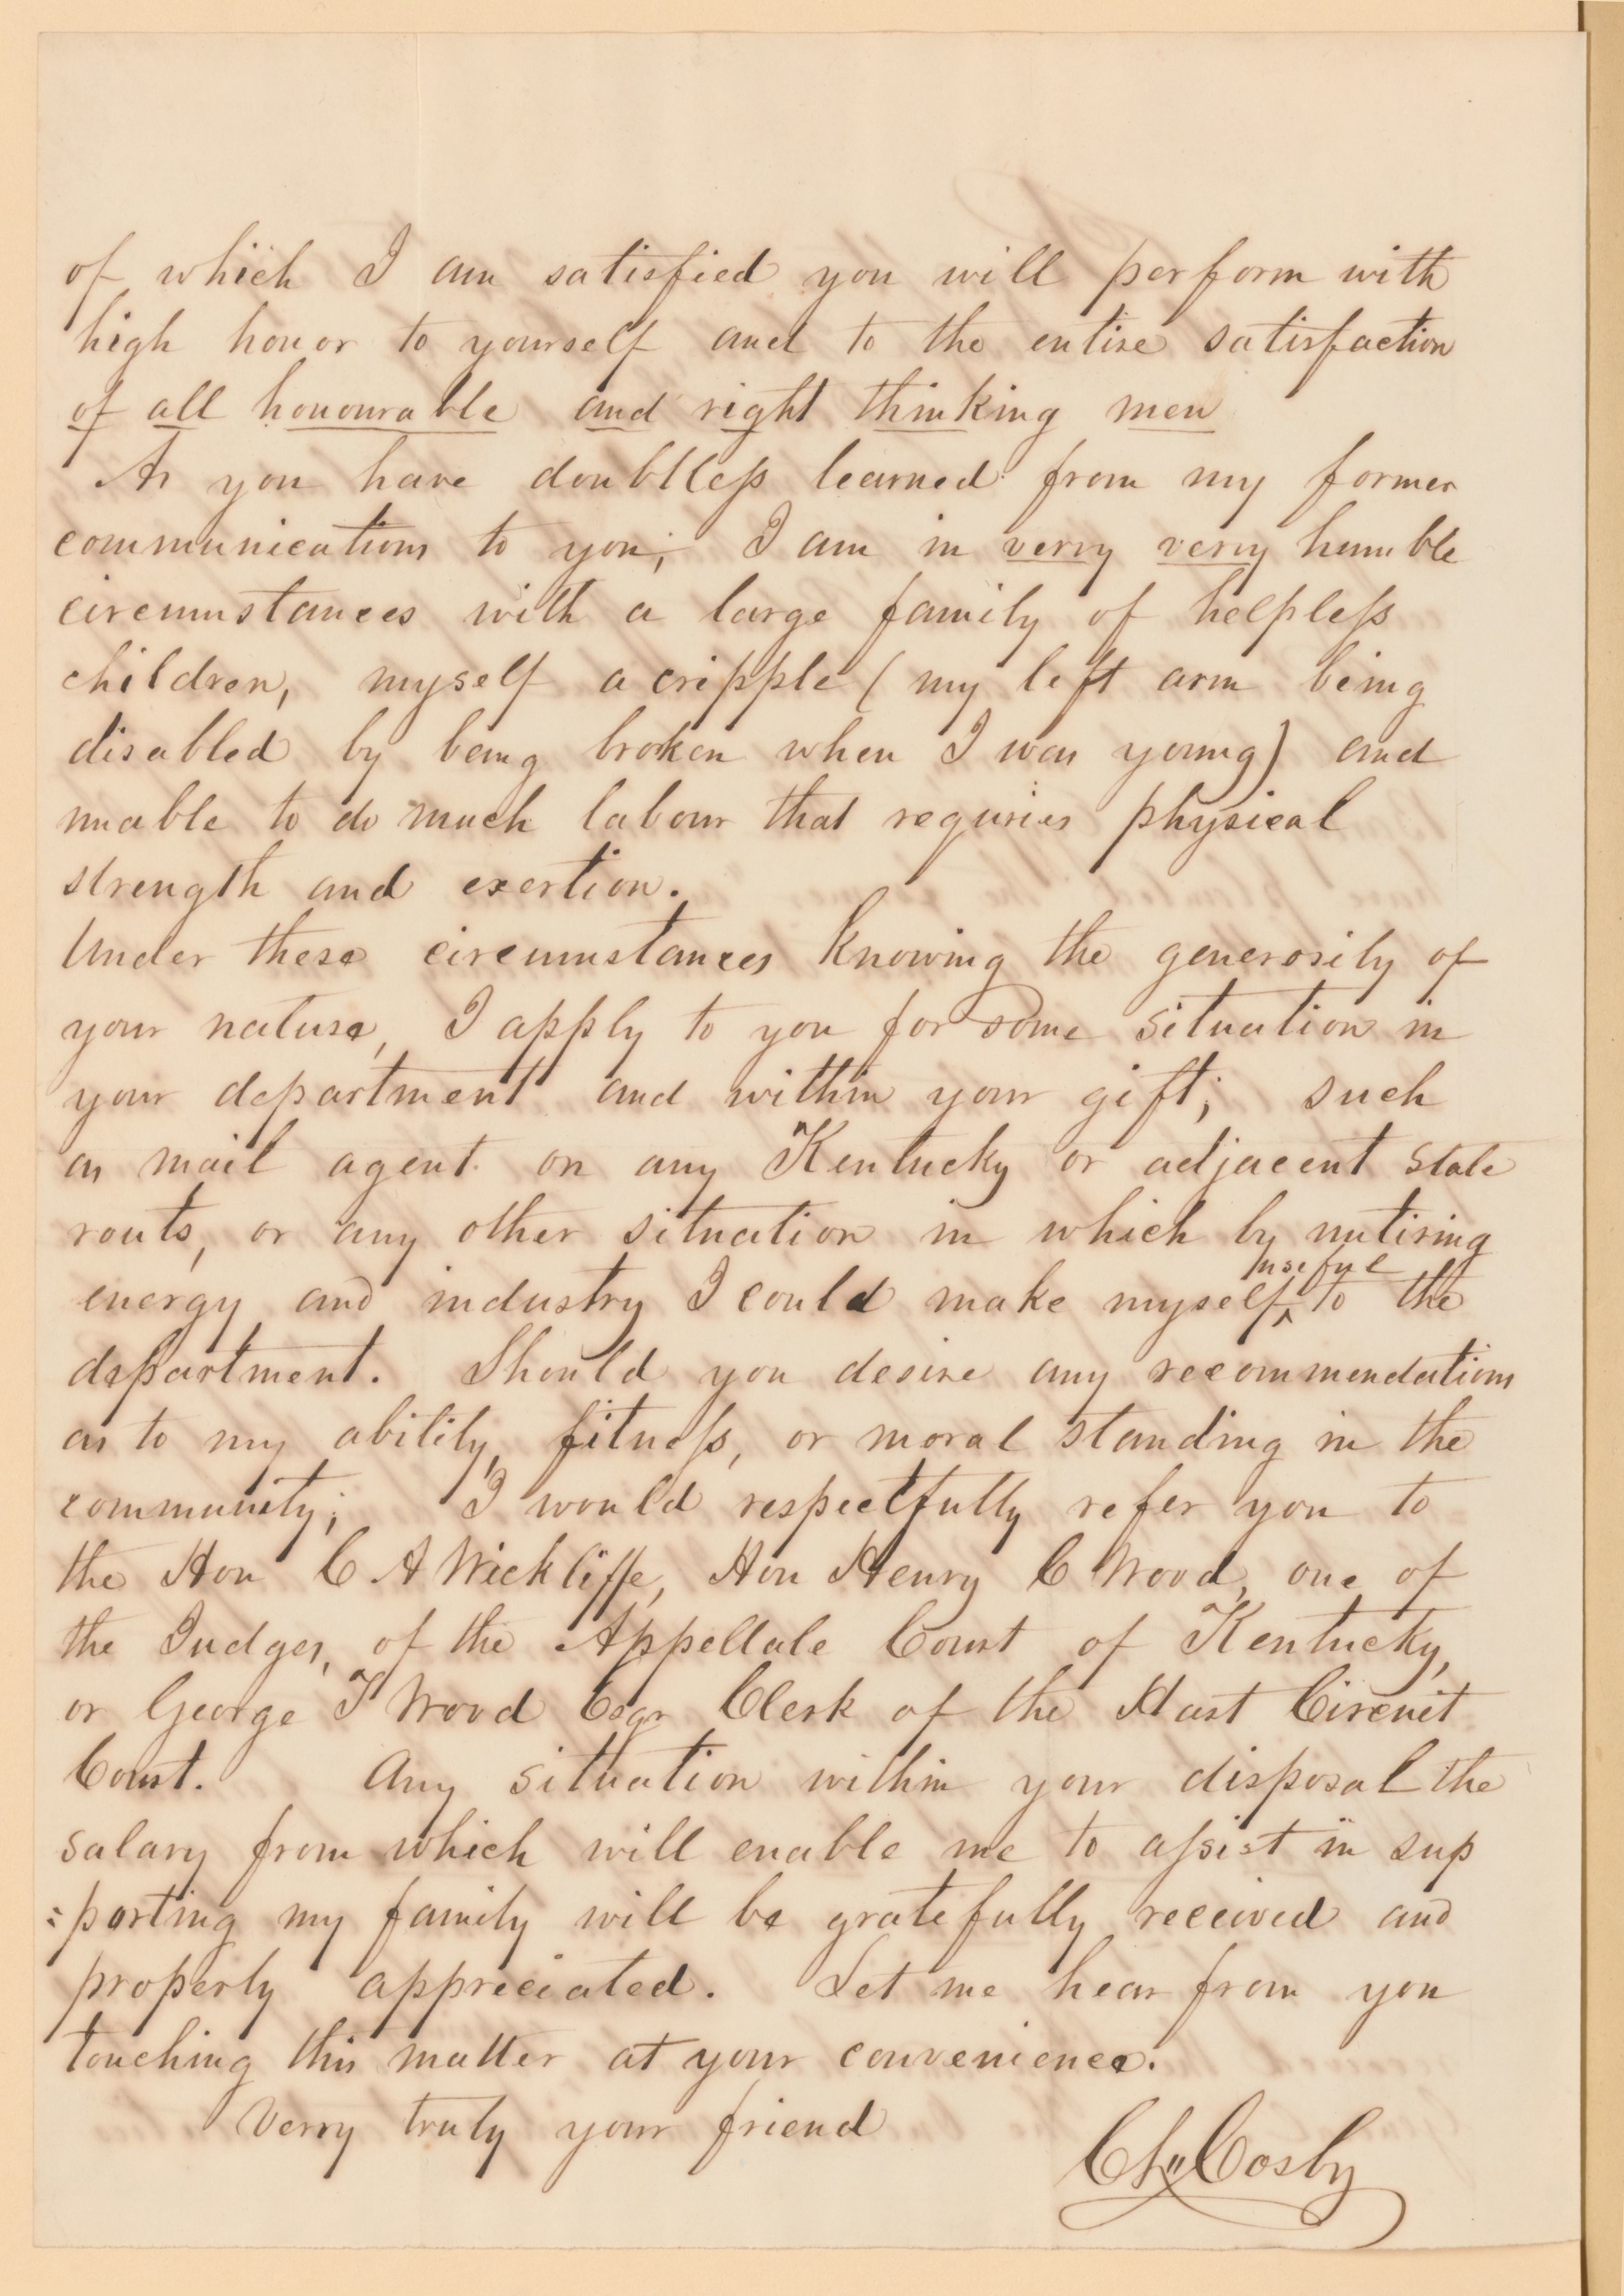 of which I am satisfied you will perform with
high honor to yourself and to the entire satisfaction
of all honourable and right thinking men
As you have doubtless learned from my former
communications to you; I am in verry verry humble
circumstances with a large family of helpless
children, myself a cripple (my left arm being
disabled by being broken when I was young) and
unable to do much labour that requires physical
strength and exertion.
Under these circumstances knowing the generosity of
your nature, I apply to you for some situation in
your department and within your gift; such
as mail agent on any Kentucky or adjacent state
routs, or any other situation in which by untiring
energy and industry I could make myself useful to the
department. Should you desire any recommendations
as to my ability, fitness, or moral standing in the
community; I would respectfully refer you to
the Hon C A Wickliffe, Hon Henry C Wood, one of
the Judges, of the Appellate Court of Kentucky,
or George T Wood Esqr Clerk of the Hart Circuit
Court. Any situation within your disposal the
salary from which will enable me to assist in sup
=porting my family will be gratefully received and
properly appreciated. Let me hear from you
touching this matter at your convenience.
Verry truly your friend
Cosby